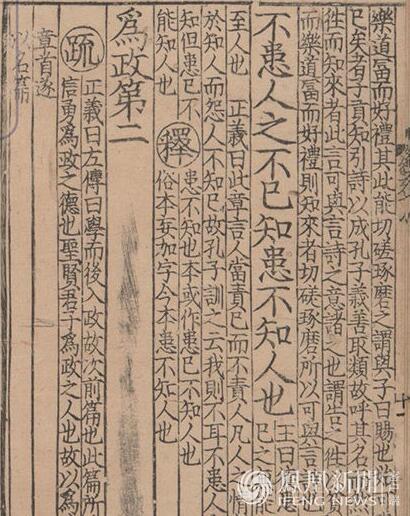 樂道富而好禮其此能切磋琢磨之謂與子曰賜也始
已矣者子貢知引詩以成孔子義善取類故呼其名
往而知來者此言可與言詩之意諸之也謂告之往
而樂道富而好禮則知來者切磋琢磨所以可與言
不患人之不己知患不知人也
王曰
己之
至人也　正義曰此章言人當責己而不責人凡人之情
於知人而怨人不知己故孔子訓之云我則不耳不患人
知但患己不
能知人也
釋
患不知也本或作患己不知人也
俗本妄加字今本患不知人也
爲政第二
疏
正義曰左傳曰學而後入政故次前篇也此篇所
信勇爲政之德也聖賢君子爲政之人也故以爲
章首遂
以名篇
鳳凰新聞
IFENG NEWS